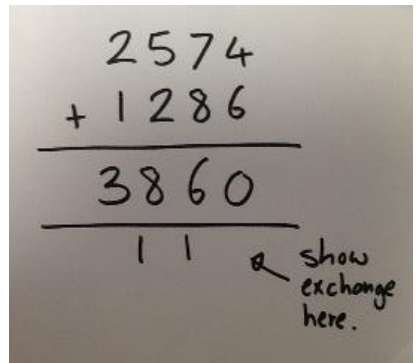 2574
+ 1286
3860
11
show
exchange
here.